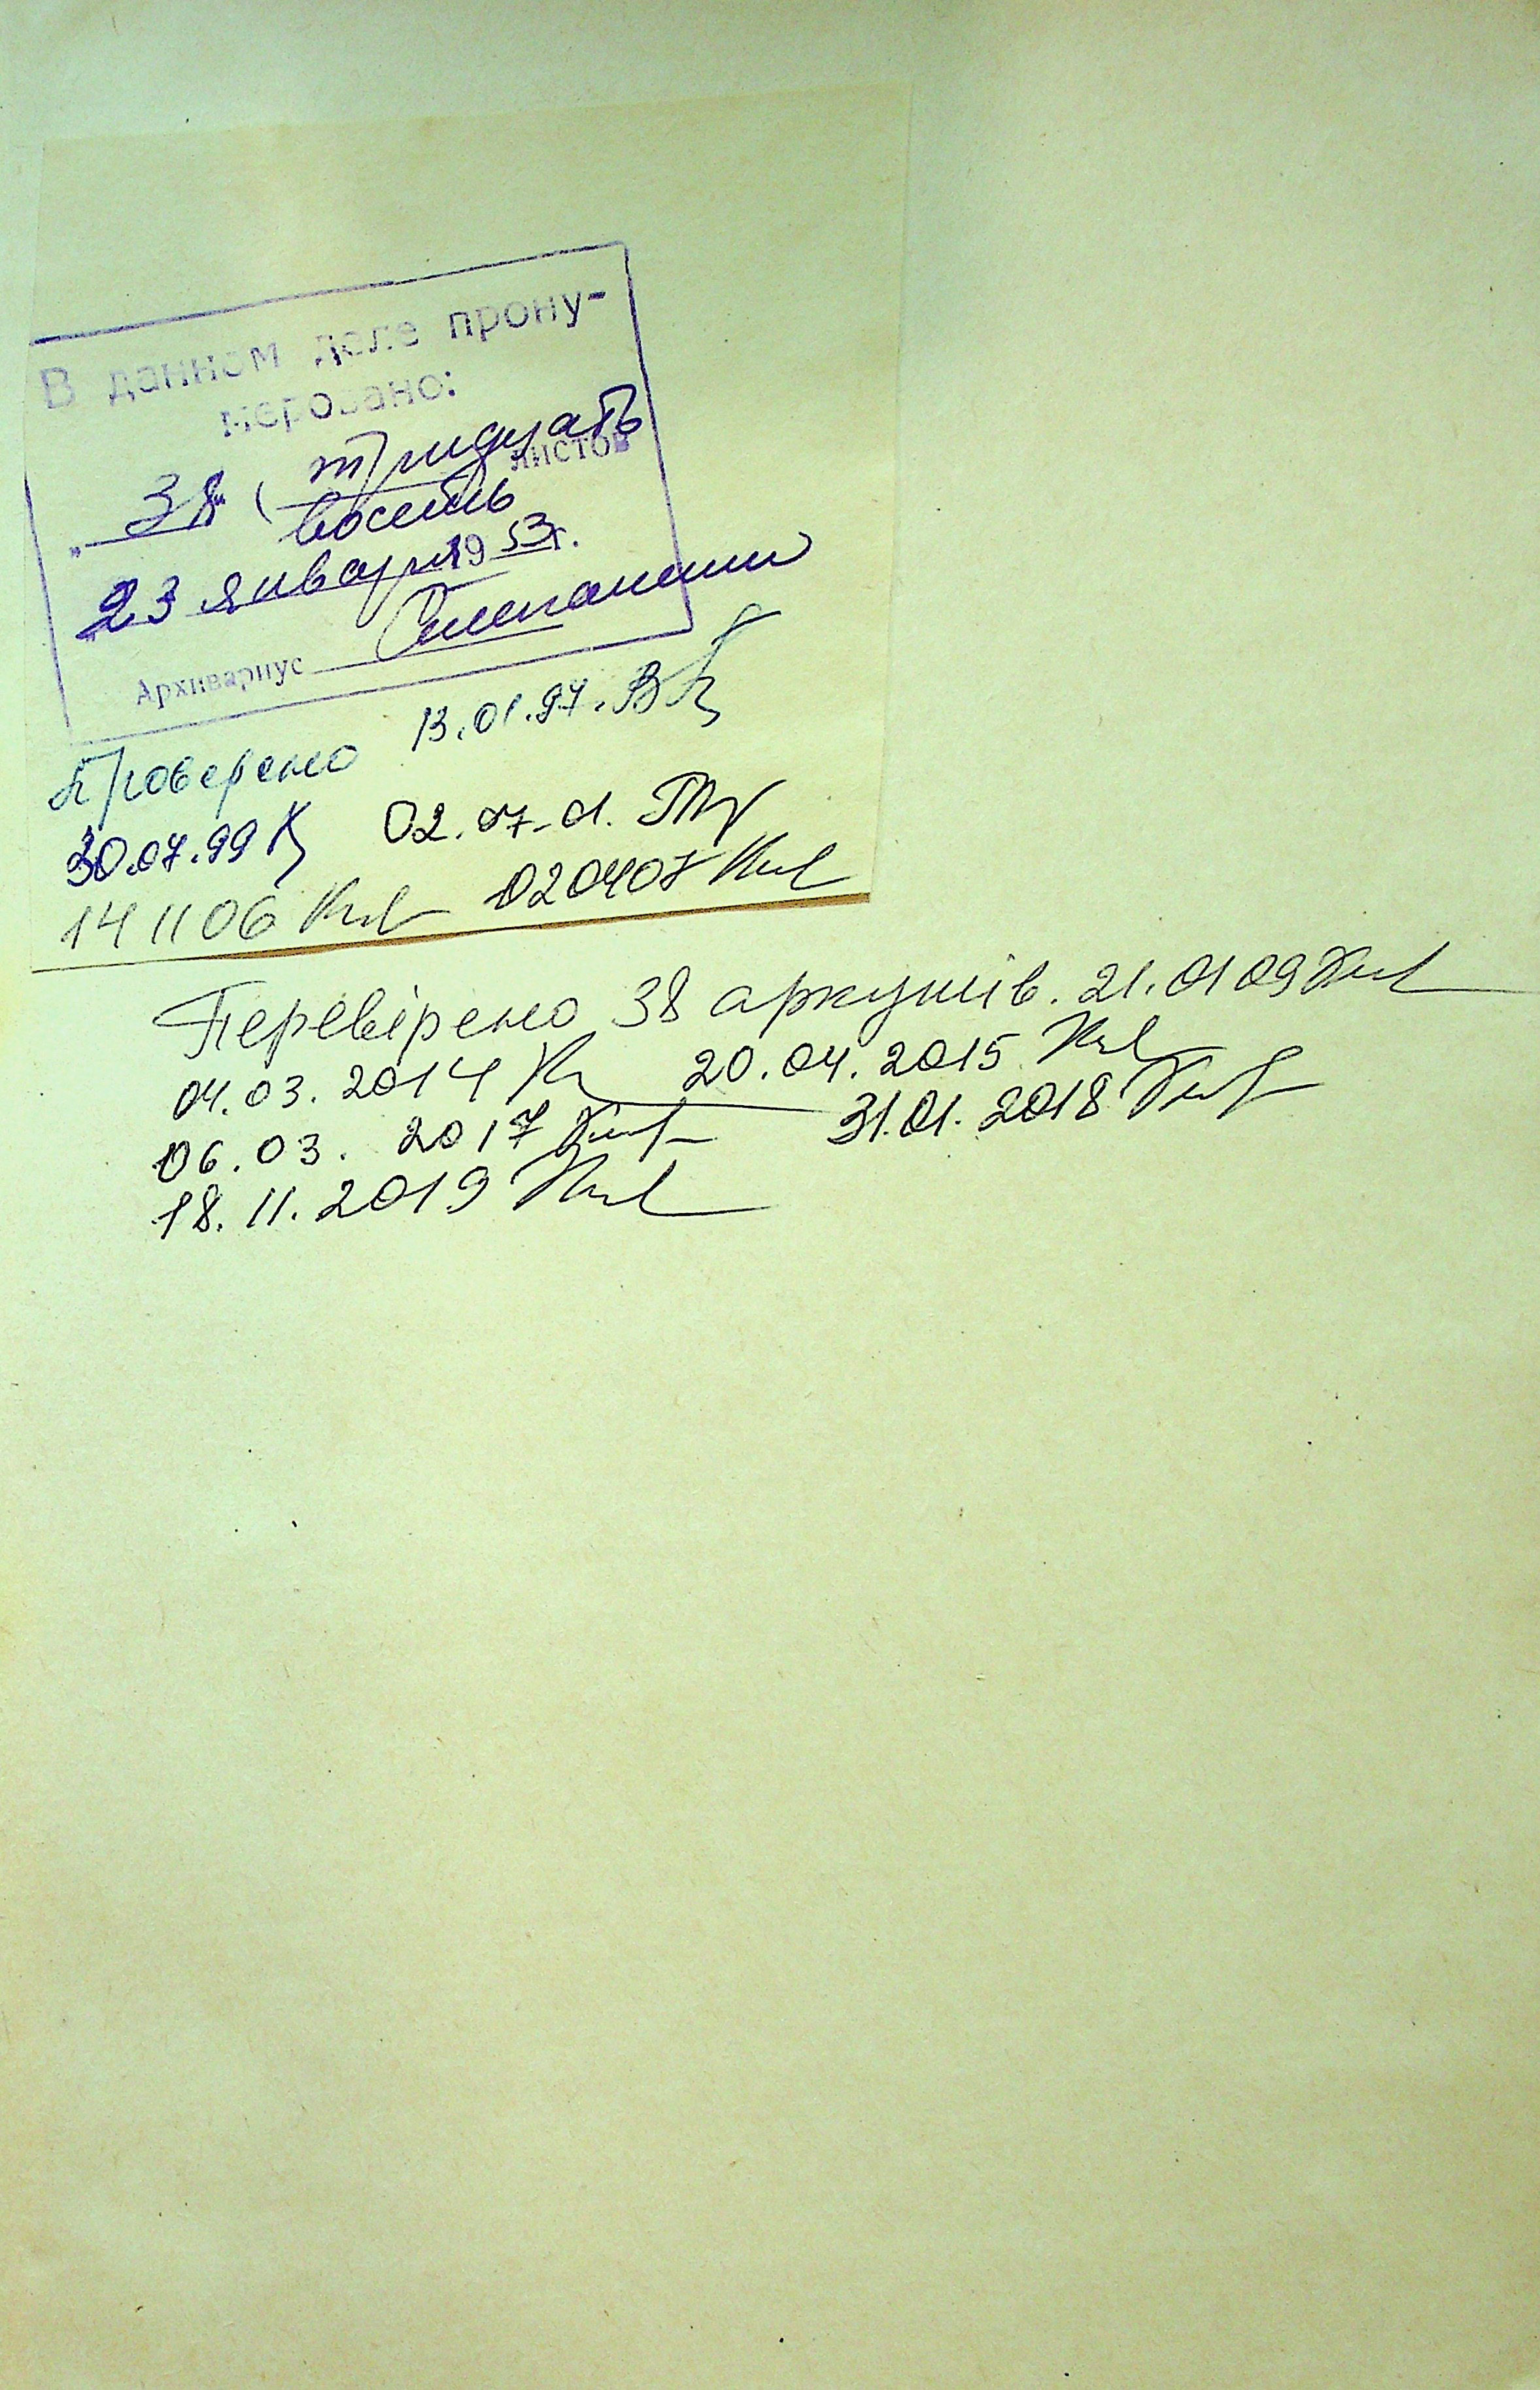 В данном деле прону-
меровано:
38 (тридцать
восемь листов
„23 января 1953г.
Архивариус
Проверено 13.01.97.
30.07.99 02.07.01.
14 11 06 020407
Перевірено 38 аркушів. 21.01 09
04.03.2014 20.04.2015
06.03.2017 31.01.2018
18.11.2019